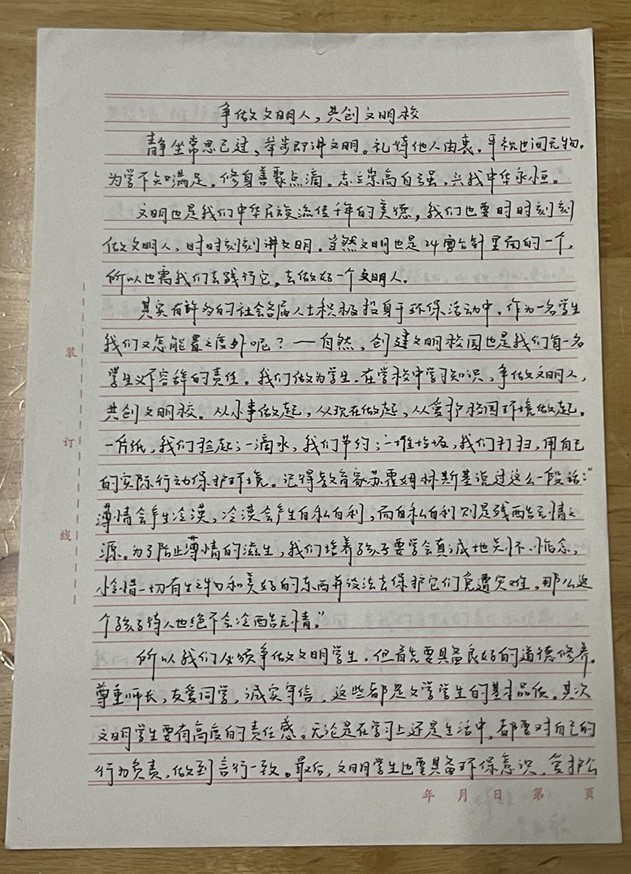 争做文明人，共创文明校
静坐常思己过，举步即讲文明。礼待他人由衷，平视世间元物。
为学不知满足。修身善聚点滴。志立崇高自强，兴我中华永恒。
文明也是我们中华民族流传千年的美德，我们也要时时刻刻
做文明人，时时刻刻讲文明。当然文明也是24字方针里面的一个，
所以也需我们去践行它。去做好一个文明人。
其实有许多的社会各届人士积极投身于环保活动中，作为一名学生
我们又怎能置之度外呢？——自然，创建文明校园也是我们每一名
学生义不容辞的责任。我们做为学生，在学校中学习知识，争做文明人，
共创文明校。从小事做起，从现在做起，从爱护校园环境做起。
一片纸，我们捡起；一滴水，我们节约；一堆垃圾，我们打扫，用自己
的实际行动保护环境。记得教育家苏霍姆林斯基说过这么一段话："
薄情会产生冷漠，冷漠会产生自私自利，而自私自利则是残酷无情之
源。为了防止薄情的滋生，我们培养孩子要学会真诚地关怀、惦念，
怜惜一切有生之物和美好的东西并设法去保护它们免遭灾难，那么这
个孩子待人也绝不会冷酷无情。"
所以我们必须争做文明学生，但首先要具备良好的道德修养。
尊重师长，友爱同学，诚实守信，这些都是文学学生的基本品德。其次
文明学生要有高度的责任感。无论是在学习上还是生活中，都要对自己的
行为负责，做到言行一致。最后，文明学生也要具备环保意识，爱护公
装
订
线
年 月 日 第 页